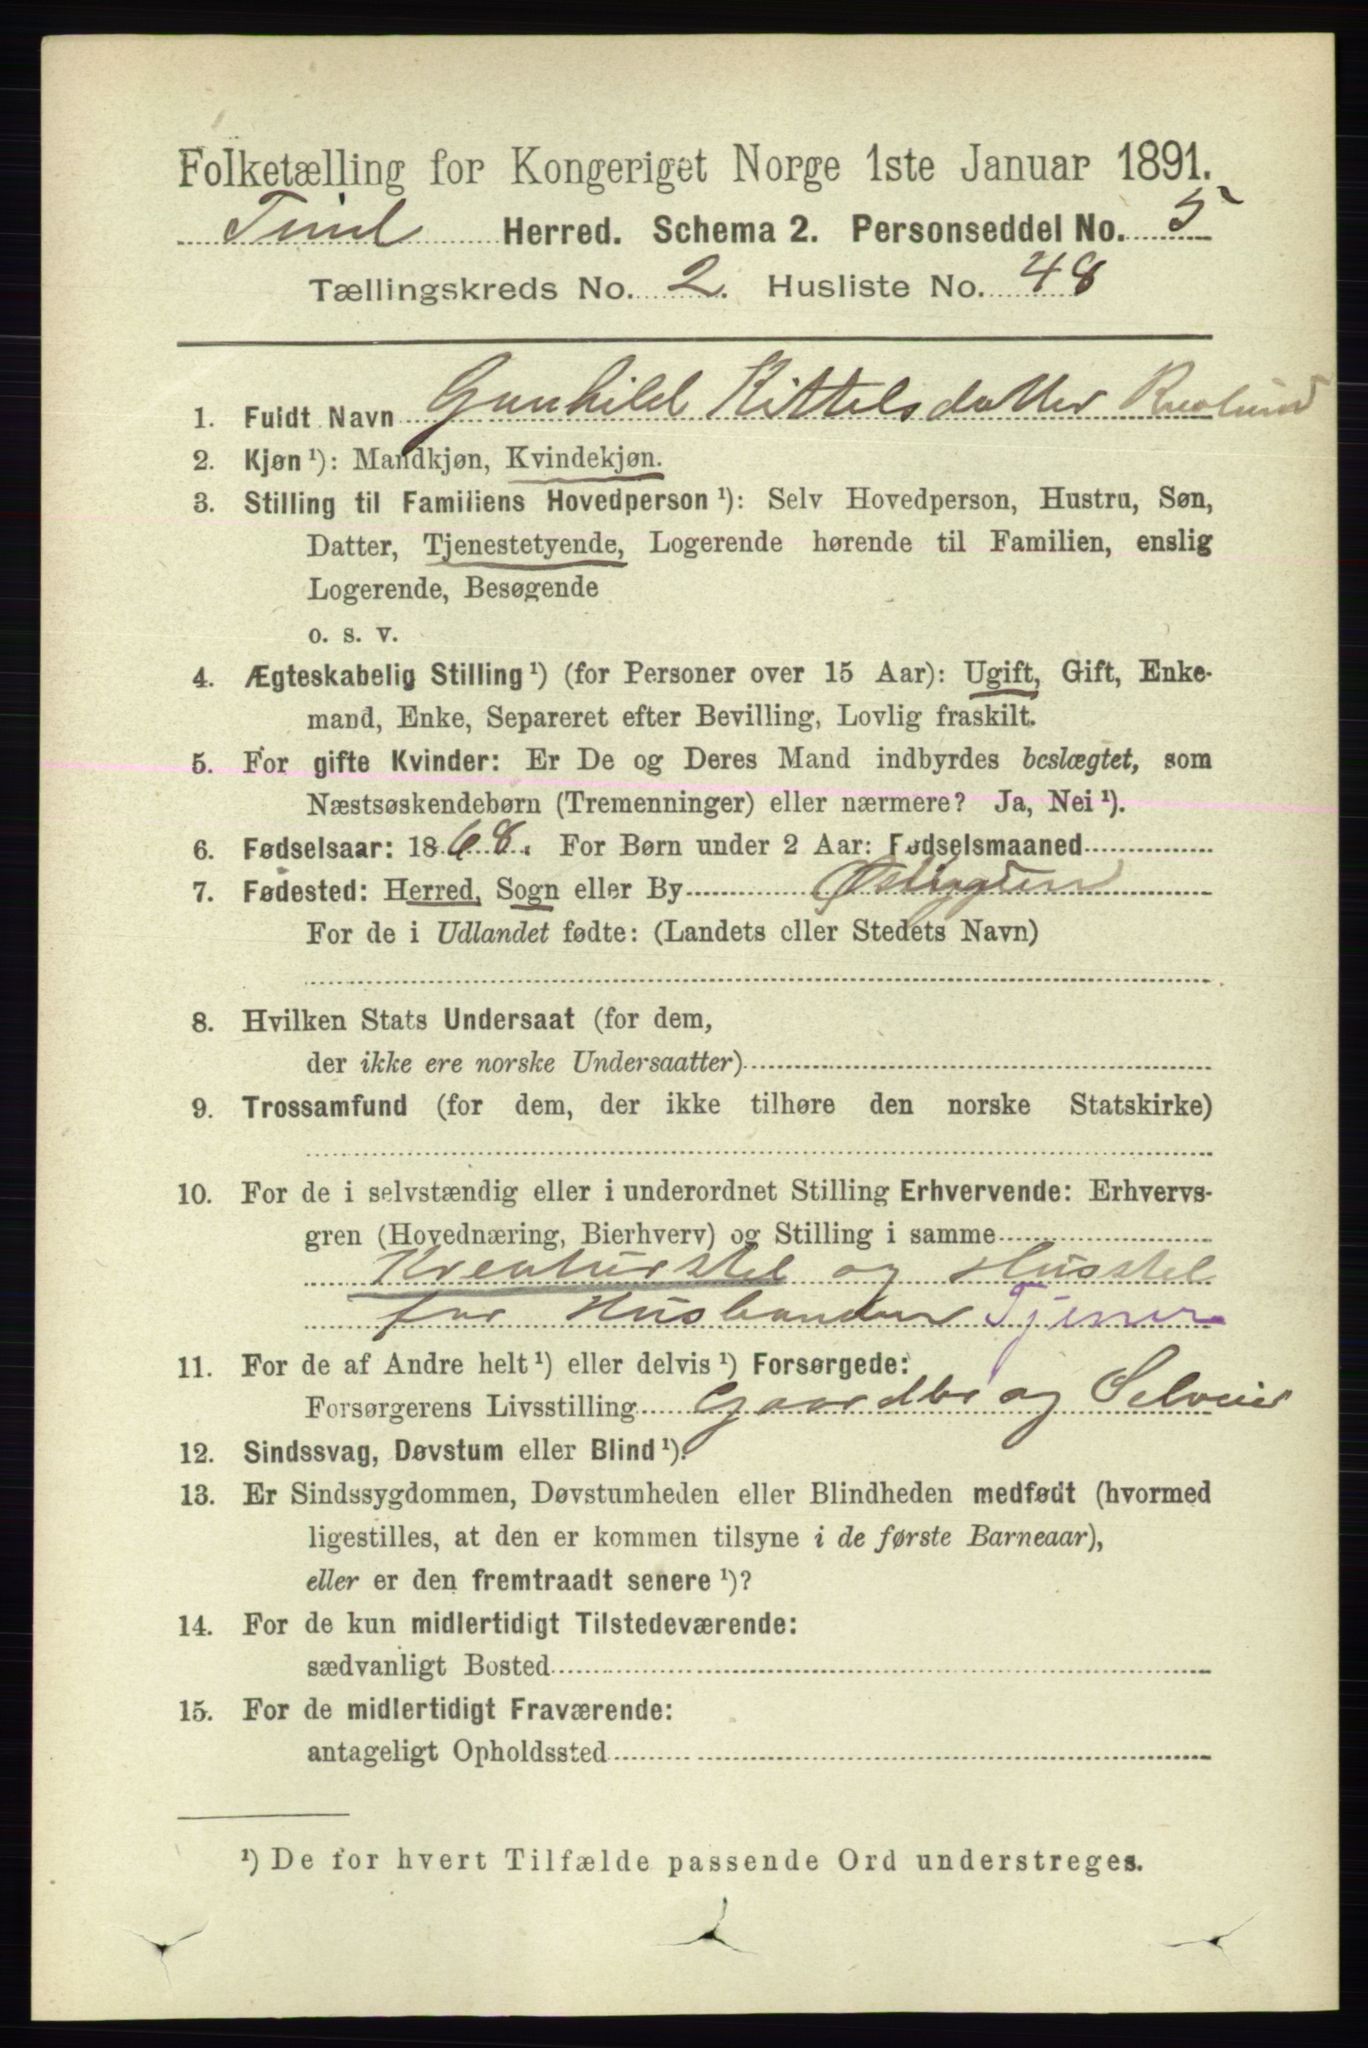 Folketælling for Kongeriget Norge 1ste Januar 1891.
Tind Herred. Schema 2. Personseddel No. 5
Tællingskreds No. 2. Husliste No. 48
1. Fuldt Navn Gunhild Kittelsdatter
2. Kjøn ¹): Mandkjøn, Kvindekjøn.
3. Stilling til Familiens Hovedperson ¹): Selv Hovedperson, Hustru, Søn,
Datter, Tjenestetyende, Logerende hørende til Familien, enslig
Logerende, Besøgende
o. s. v.
4. Ægteskabelig Stilling ¹) (for Personer over 15 Aar): Ugift, Gift, Enke-
mand, Enke, Separeret efter Bevilling, Lovlig fraskilt.
5. For gifte Kvinder: Er De og Deres Mand indbyrdes beslægtet, som
Næstsøskendebørn (Tremenninger) eller nærmere? Ja, Nei ¹).
6. Fødselsaar: 1868. For Børn under 2 Aar: Fødselsmaaned
7. Fødested: Herred, Sogn eller By
For de i Udlandet fødte: (Landets eller Stedets Navn)
8. Hvilken Stats Undersaat (for dem,
der ikke ere norske Undersaatter)
9. Trossamfund (for dem, der ikke tilhøre den norske Statskirke)
10. For de i selvstændig eller i underordnet Stilling Erhvervende: Erhvervs-
gren (Hovednæring, Bierhverv) og Stilling i samme
Kreaturstel og Husstel
for Husbonden Tjener
11. For de af Andre helt ¹) eller delvis ¹) Forsørgede:
Forsørgerens Livsstilling Gaardbr og Selveier
12. Sindssvag, Døvstum eller Blind ¹).
13. Er Sindssygdommen, Døvstumheden eller Blindheden medfødt (hvormed
ligestilles, at den er kommen tilsyne i de første Barneaar),
eller er den fremtraadt senere ¹)?
14. For de kun midlertidigt Tilstedeværende:
sædvanligt Bosted
15. For de midlertidigt Fraværende:
antageligt Opholdssted
¹) De for hvert Tilfælde passende Ord understreges.